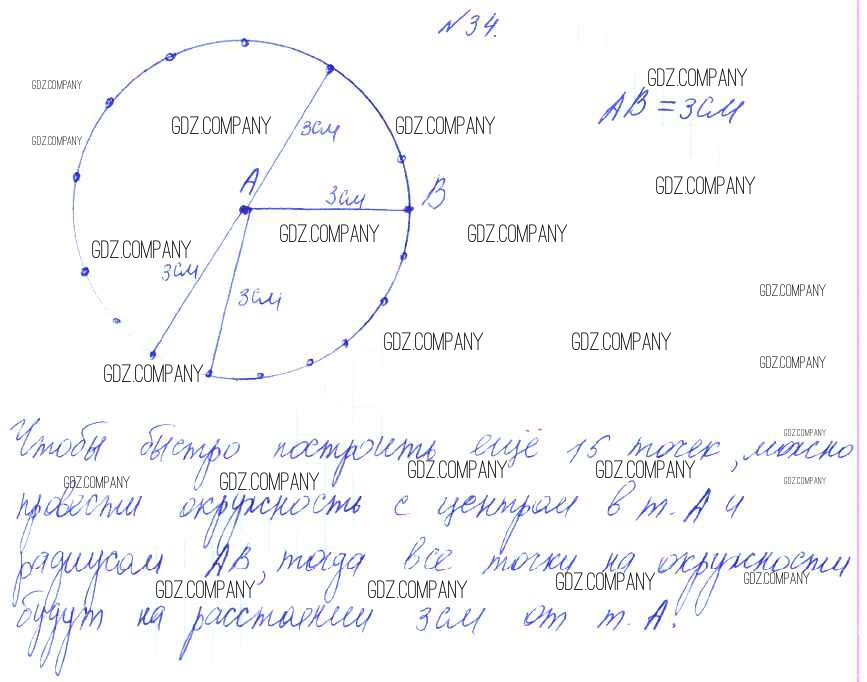 №34.
GDZ.COMPANY
GDZ.COMPANY
AB = 3см
GDZ.COMPANY
GDZ.COMPANY
3см
GDZ.COMPANY
A
3см
B
GDZ.COMPANY
GDZ.COMPANY
GDZ.COMPANY
GDZ.COMPANY
3см
3см
GDZ.COMPANY
GDZ.COMPANY
GDZ.COMPANY
GDZ.COMPANY
GDZ.COMPANY
GDZ.COMPANY
Чтобы быстро построить ещё 15 точек, можно
GDZ.COMPANY
GDZ.COMPANY
GDZ.COMPANY
GDZ.COMPANY
GDZ.COMPANY
GDZ.COMPANY
провести окружность с центром в т. А и
радиусом АВ, тогда все точки на окружности
GDZ.COMPANY
GDZ.COMPANY
GDZ.COMPANY
GDZ.COMPANY
будут на расстоянии 3см от т. А.